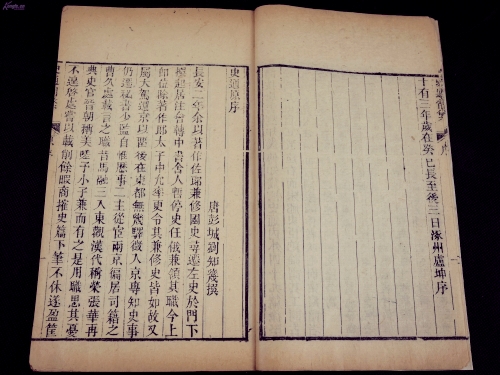 十有三年歲在癸巳長至後三日涿州盧坤序
史通原序
唐彭城劉知幾撰
長安二年余以著作佐郎兼修國史尋遷左史於門下
撰起居注會轉中書舍人暫停史任俄兼領其職今上
即位除著作郎太子中允率更令其兼修史皆如故又
屬大駕還京以留後在東都無幾驛徵入京專知史事
仍遷祕書少監自惟歷事二主從宦兩京徧居司籍之
曹久處載言之職昔馬融三入東觀漢代稱榮張華再
典史官晉朝稱美嗟予小子兼而有之是用職思其憂
不遑啓處嘗以載削餘暇商搉史篇下筆不休遂盈筐